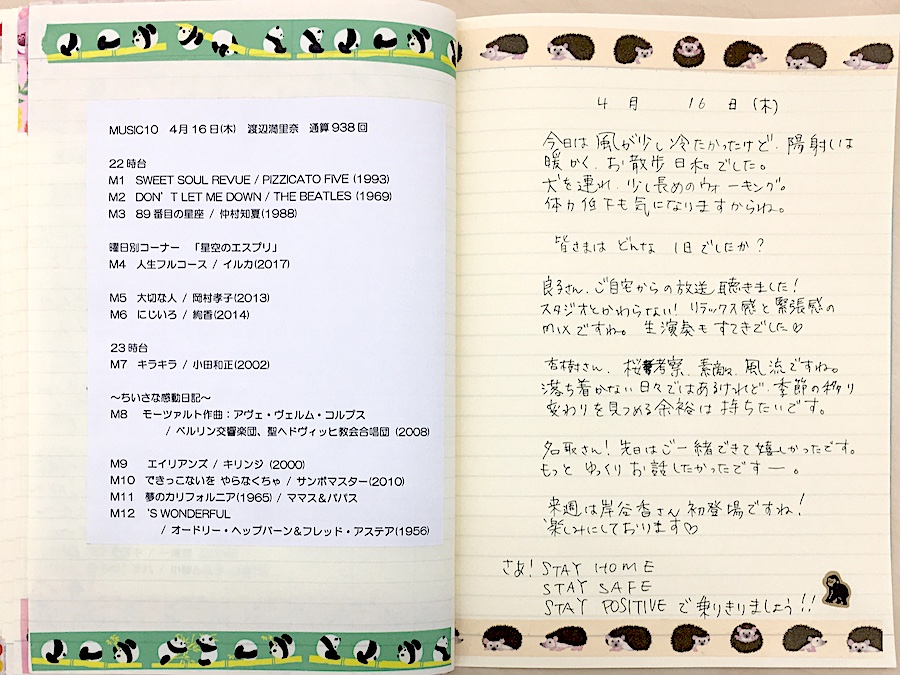 MUSIC10 4月16日(木) 渡辺満里奈 通算938回
22時台
M1 SWEET SOUL REVUE / PIZZICATO FIVE (1993)
M2 DON'T LET ME DOWN / THE BEATLES (1969)
M3 89番目の星座 / 仲村知夏(1988)
曜日別コーナー 「星空のエスプリ」
M4 人生フルコース / イルカ(2017)
M5 大切な人 / 岡村孝子(2013)
M6 にじいろ / 絢香(2014)
23時台
M7 キラキラ / 小田和正(2002)
～ちいさな感動日記～
M8 モーツァルト作曲：アヴェ・ヴェルム・コルプス
/ ベルリン交響楽団、聖ヘドヴィッヒ教会合唱団 (2008)
M9 エイリアンズ / キリンジ (2000)
M10 できっこないを やらなくちゃ / サンボマスター(2010)
M11 夢のカリフォルニア(1965) / ママス&パパス
M12 'S WONDERFUL
/ オードリー・ヘップバーン&フレッド・アステア(1956)
4月 16日(木)
今日は風が少し冷たかったけど、陽射しは
暖かく、お散歩日和でした。
犬を連れ、少し長めのウォーキング。
体力低下も気になりますからね。
皆さまはどんな1日でしたか?
良子さん、ご自宅からの放送聴きました!
スタジオとかわらない! リラックス感と緊張感の
mixですね。生演奏もすてきでした♡
杏樹さん、桜考察、素敵、風流ですね。
落ち着かない日々ではあるけれど、季節の移り
変わりを見つめる余裕は持ちたいです。
名取さん! 先日はご一緒できて嬉しかったです。
もっとゆっくりお話したかったですー。
来週は岸谷香さん初登場ですね!
楽しみにしております♡
さあ! STAY HOME
STAY SAFE
STAY POSITIVE で乗りきりましょう!!